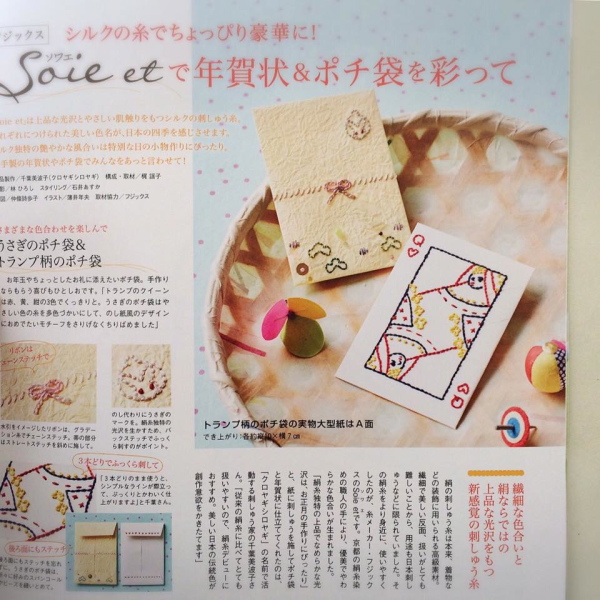 ジックス
シルクの糸でちょっぴり豪華に!
ソワエ
Soie etで年賀状&ポチ袋を彩って
oie et」は上品な光沢とやさしい肌触りをもつシルクの刺しゅう糸。
れぞれにつけられた美しい色名が、日本の四季を感じさせます。
ルク独特の艶やかな風合いは特別な日の小物作りにぴったり。
手製の年賀状やポチ袋でみんなをあっと言わせて!
品製作/千葉美波子(クロヤギシロヤギ) 構成・取材/梶 謡子
影/林 ひろし スタイリング/石井あすか
図/仲條詩歩子 イラスト/薄井年夫 取材協力/フジックス
さまざまな色合わせを楽しんで
うさぎのポチ袋&
トランプ柄のポチ袋
お年玉やちょっとしたお礼に添えたいポチ袋。手作り
ならもらう喜びもひとしおです。「トランプのクイーン
は赤、黄、紺の3色でくっきりと。うさぎのポチ袋はや
さしい色の糸を多色づかいにして、のし紙風のデザイン
におめでたいモチーフをさりげなくちりばめました」
リボンは
チェーンステッチで
水引をイメージしたリボンは、グラデー
ション糸でチェーンステッチ。帯の部分
はストレートステッチを斜めに施して。
のし代わりにうさぎの
マークを。絹糸独特の
光沢を生かすため、バ
ックステッチでふっく
ら刺すのがポイント。
3本どりでふっくら刺して
「3本どりのまま使うと、
シンプルなラインが際立っ
て、ぷっくりとかわいく仕
上がりますよ」と千葉さん。
後ろ面にもステッチ
Q
Q
トランプ柄のポチ袋の実物大型紙はA面
でき上がり:各約縦10×横7cm
繊細な色合いと
絹ならではの
上品な光沢をもつ
新感覚の刺しゅう糸
絹の刺しゅう糸は本来、着物な
どの装飾に用いられる高級素材。
繊細で美しい反面、扱いがとても
難しいことから、用途も日本刺し
ゅうなどに限られていました。そ
の絹糸をより身近に、使いやすく
したのが、糸メーカー・フジック
スの「Soie et」です。京都の絹糸染
めの職人の手により、優美でやわ
らかな色合いが生まれました。
「絹糸独特の上品でなめらかな光
沢は、お正月の手作りにぴったり」
と、紙に刺しゅうを施してポチ袋
と年賀状に仕立ててくれたのは、
「クロヤギシロヤギ」の名前で活
動する刺しゅう家の千葉美波子さ
ん。「従来の絹糸に比べてとても
扱いやすいので、絹糸デビューに
おすすめ。美しい日本の伝統色が
創作意欲をかきたてます」